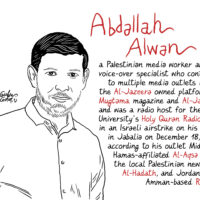 Abdallah
Alwan
a Palestinian media worker a
voice-over specialist who con
to multiple media outlets
the Al-Jazeera owned platfo
Mugtama magazine and Al-Ja
and was a radio host for th
University's Holy Quran Radio
in an Israeli airstrike on his
in Jabalia on December 18,
according to his outlet Mid
Hamas-affiliated Al-Aqsa
the local Palestinian new
Al-Hadath, and Jordan
Amman-based R